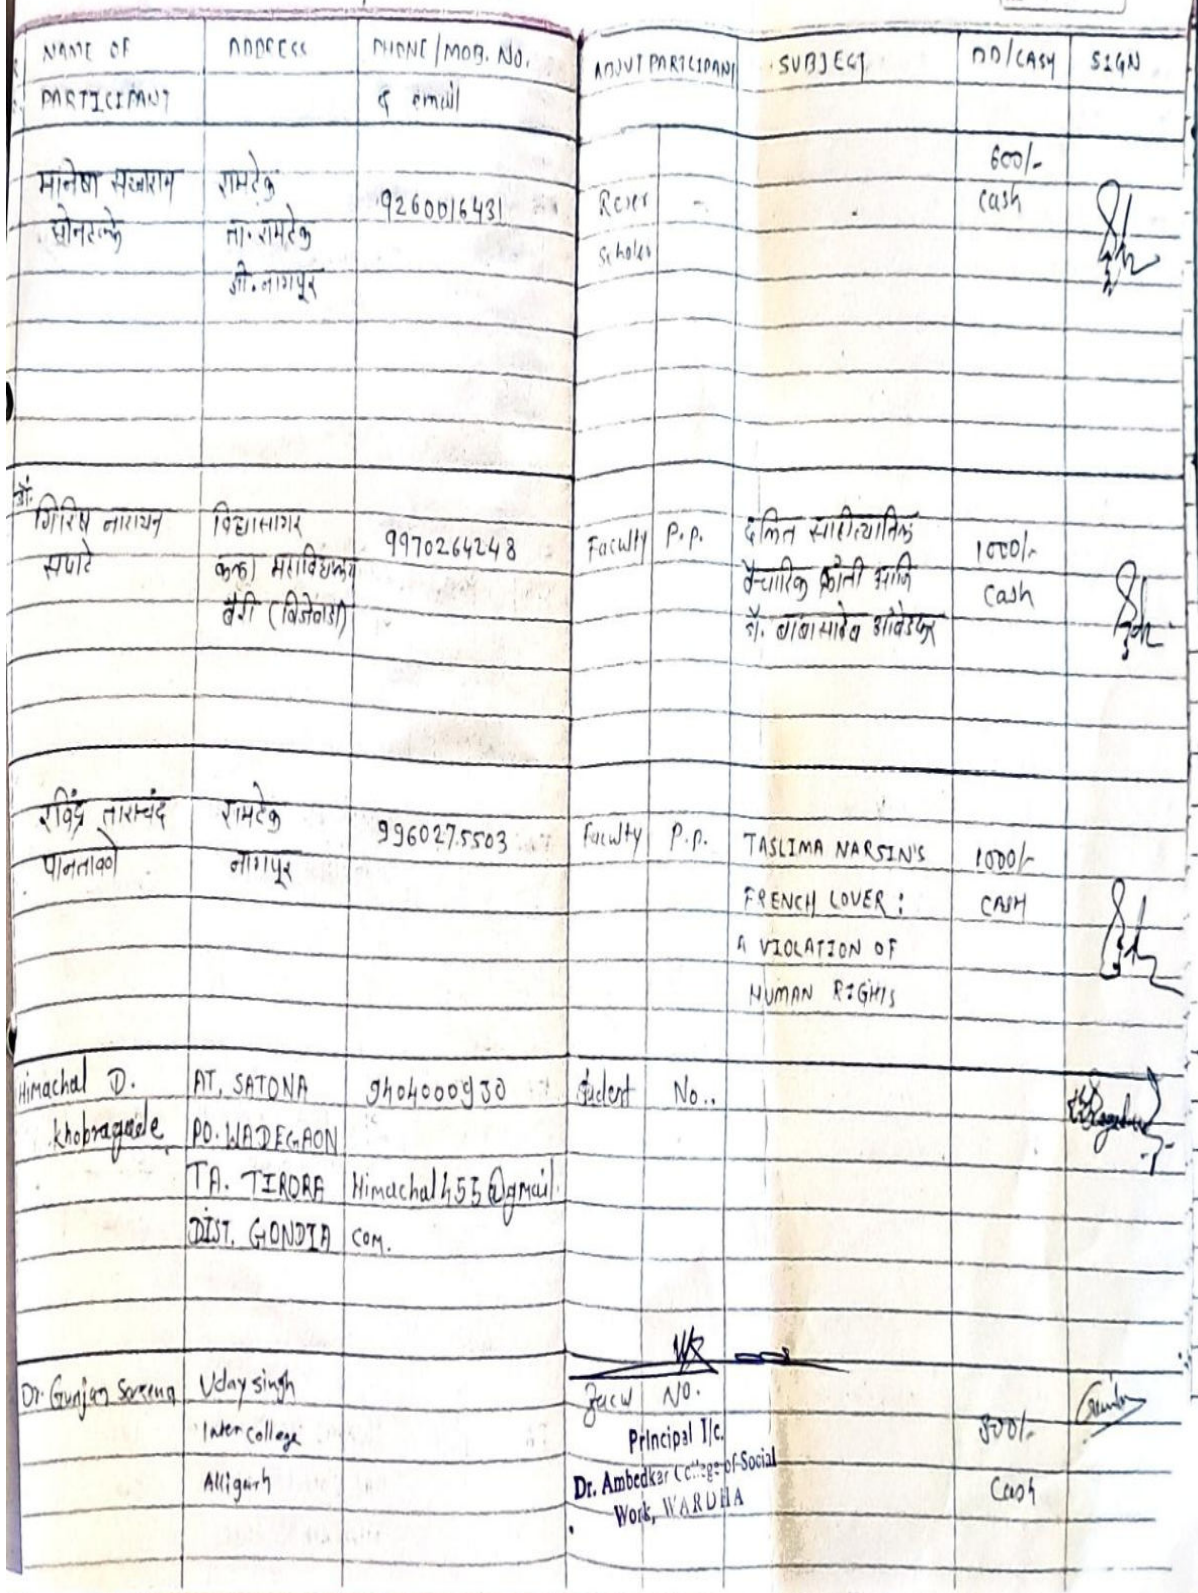 NAME OF PARTICIPANT ADDRESS PHONE/MOB. NO. & email ABOUT PARTICIPANT SUBJECT DD/CASH SIGN
सोनटक्के
रामटेक
ता. रामटेक
जी. नागपूर
9260016431
Reser
scholer
-
600/-
cash
डॉ.
गिरिष नारायन
सपाटे
विद्यासागर
कला महाविद्यालय
9970264248
Faculty
P.P.
दलित
वैचारिक क्रांती आणि
डॉ. बाबासाहेब आंबेडकर
1000/-
cash
रविंद्र ताराचंद
रामटेक
नागपूर
9960275503
Faculty
P.P.
TASLIMA NARSIN'S
FRENCH LOVER :
A VIOLATION OF
HUMAN RIGHTS
1000/-
CASH
Himachal D.
Khobragade
AT. SATONA
PO. WADEGAON
TA. TIRORA
DIST. GONDIA
9404000930
Himachal455@gmail.
com.
Student
No..
Dr. Gunjan Saxena
Uday singh
Inter college
Alligarh
Facul
No.
800/-
Cash
Principal I/c.
Dr. Ambedkar College of Social
Work, WARDHA